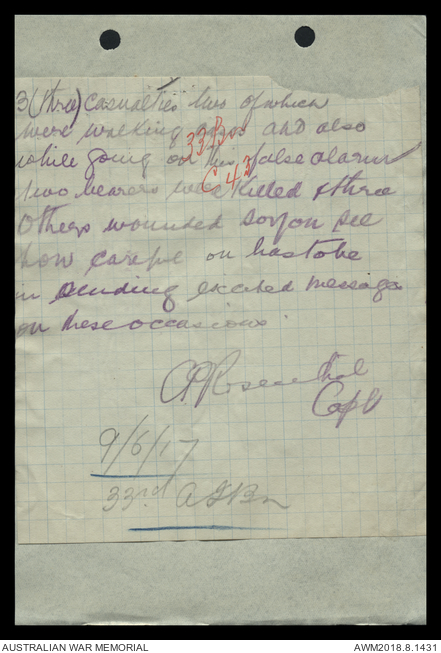 3 (three) casualties two of which
were walking cases and also
33 Bn
while going on this false alarm
C 42
two bearers were killed & three
others wounded so you see
how careful on has to be
in sending excited messages
on these occasions.
C. Rosenthal
Capt
9/6/17
33rd A I Bn
AUSTRALIAN WAR MEMORIAL
AWM2018.8.1431